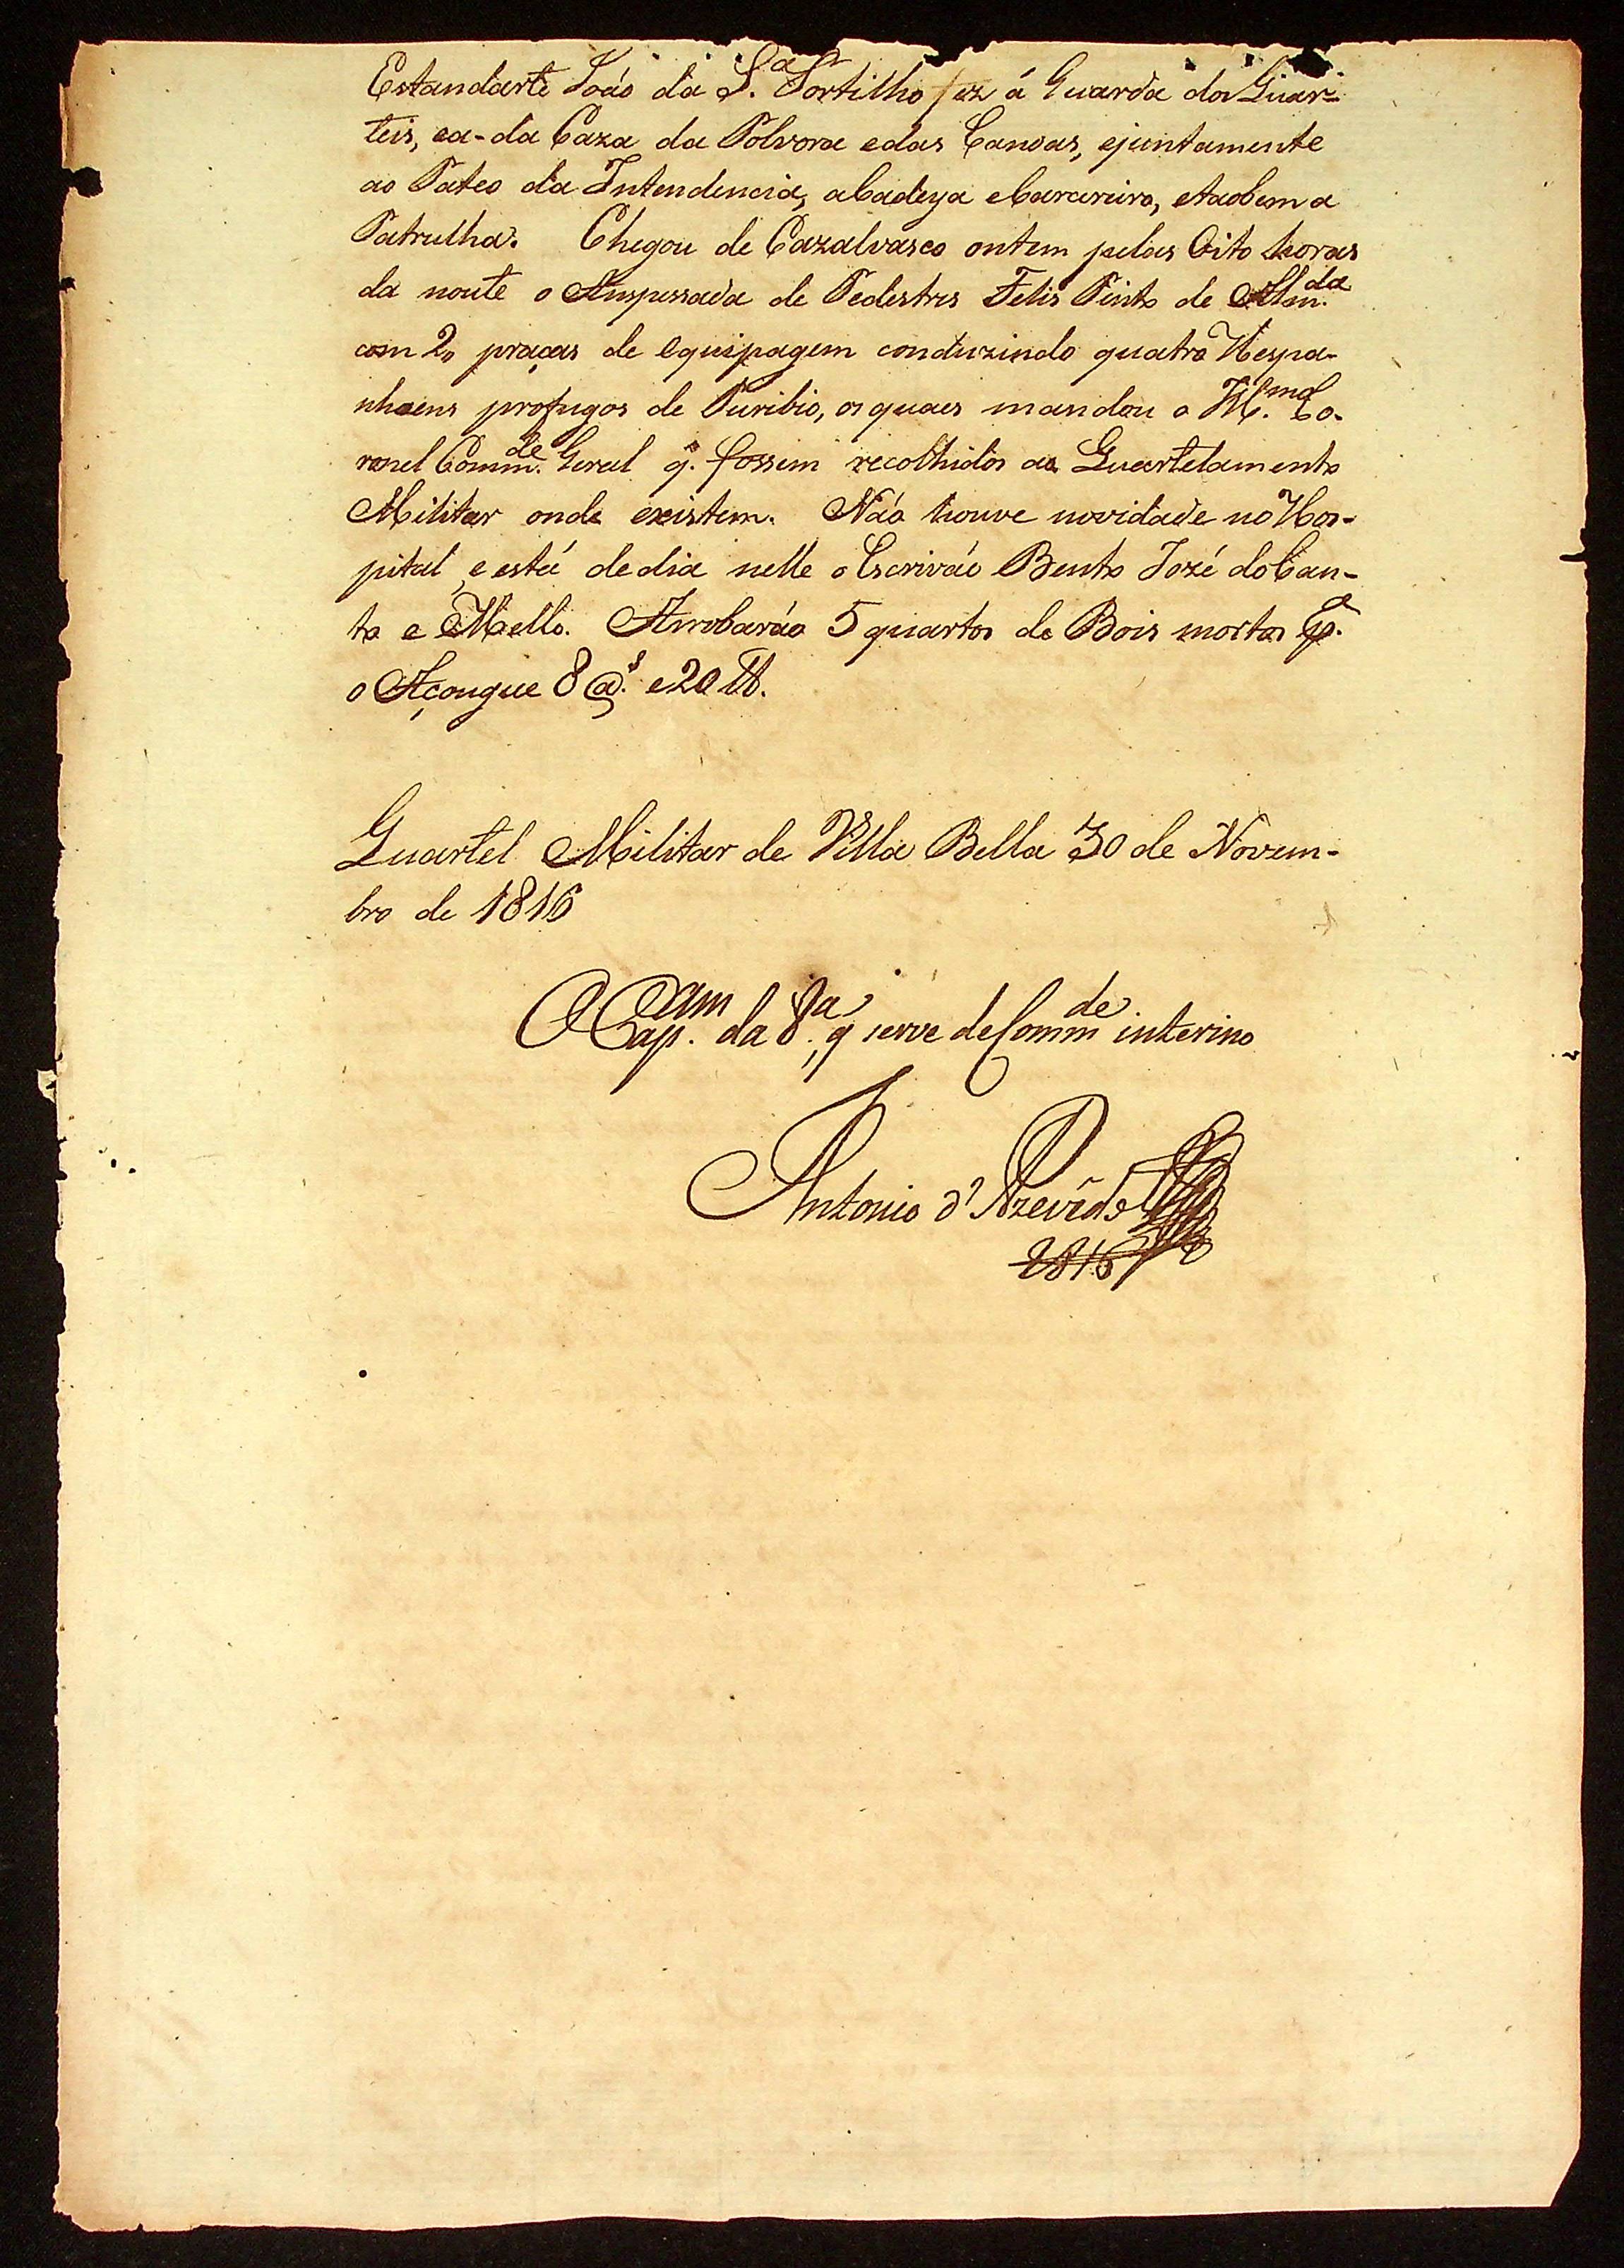 Estandarte João da S.ª Portilho fez á Guarda dos Quar-
teis, ea-da Caza da Polvora edas Canoas, ejuntamente
ao Pateo da Intendencia, aCadeya eCarcereiro, etaobem a
Patrulha. Chegou de Cazalvasco ontem pelas Oito horas
da noute o Anspessada de Pedestres Felis Pinto de Alm.da
com 2, praças de Equipagem conduzindo quatro Hespa-
nhoens profugos de Puribio, os quaes mandou o Ill.mo Co-
ronel Comm.de Geral q. fossem recolhidos ao Quartelamento
Militar onde existem. Não houve novidade no Hos-
pital, e está dedia nelle o Escrivão Bento Jozé doCan-
to e Mello. Arrobarão 5 quartos de Bois mortos p.ª
o Açougue 8 @.s e 20 lb.
Quartel Militar de Villa Bella 30 de Novem-
bro de 1816
O Cap.am da 8.ª, q serve deComm.de interino
Antonio d'Azevedo
1816